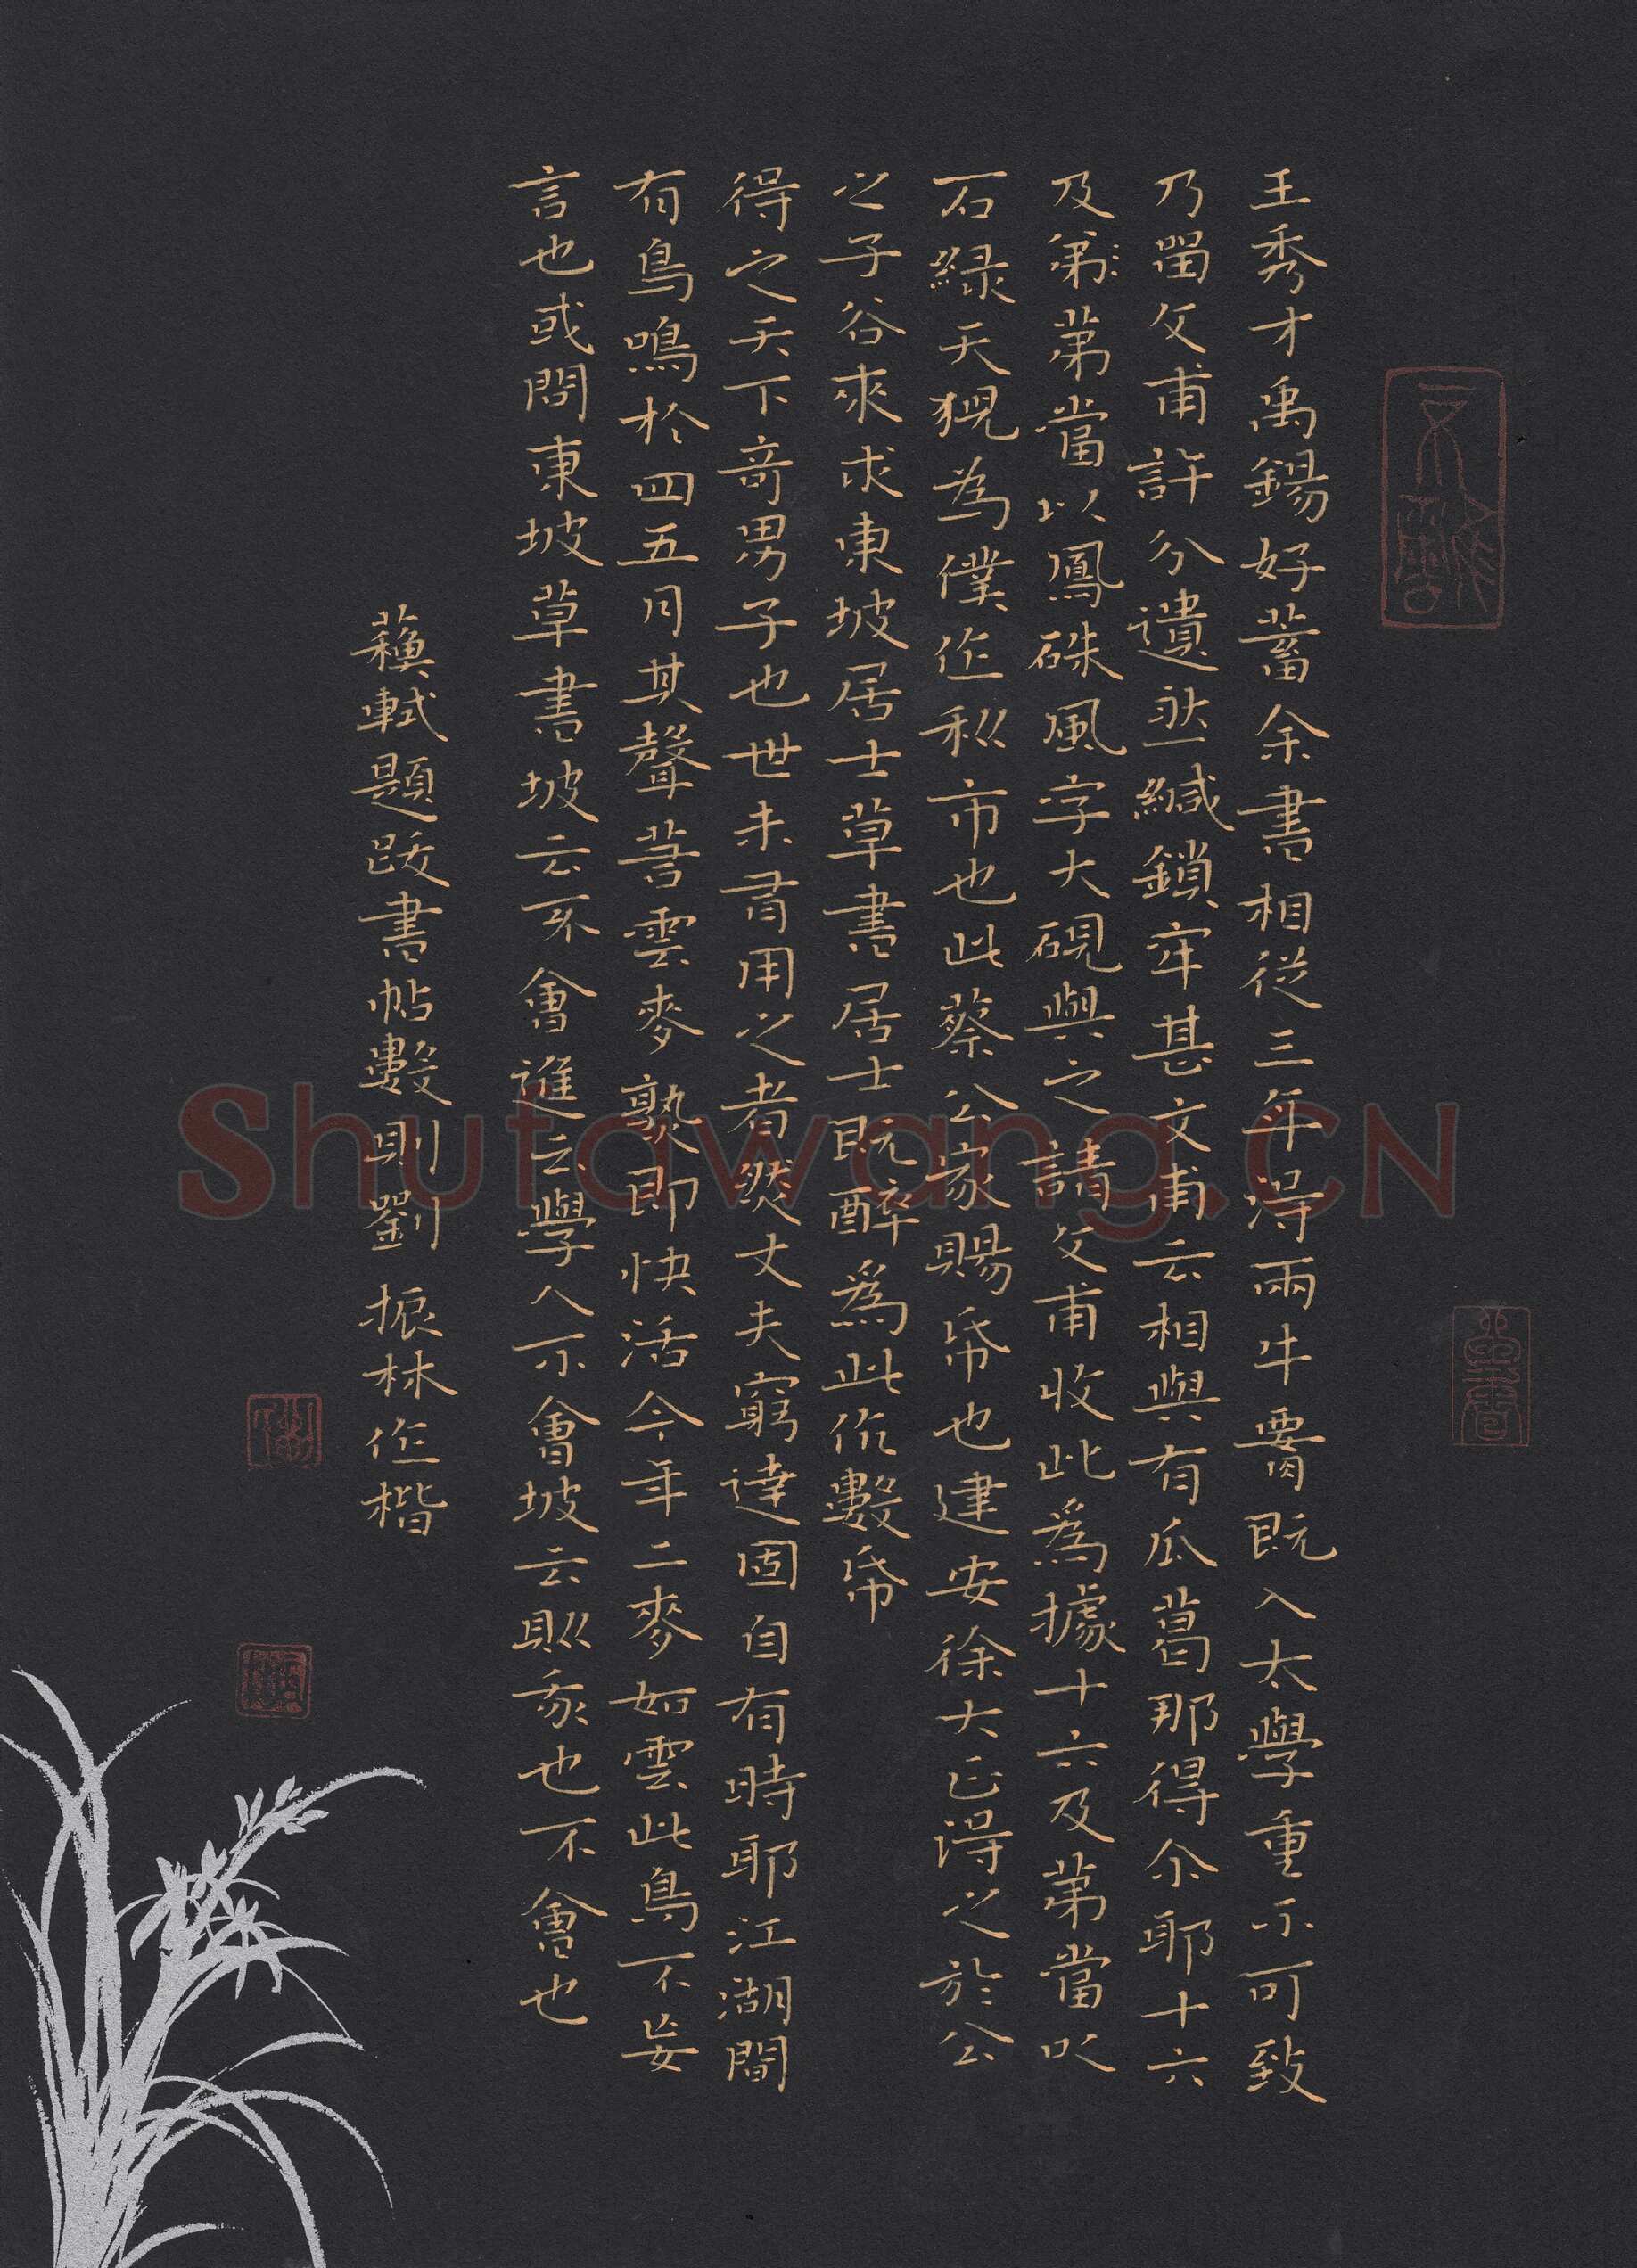 王秀才禹錫好蓄余書相從三年得兩牛署既入太學重不可致
乃留文甫許分遺然緘鎖牢甚文甫云相與有瓜葛那得尒耶十六
及弟第當以鳳硃風字大硯與之請文甫收此為據十六及第當以
石緑天猊為僕作利市也此蔡公家賜帋也建安徐大正得之於公
之子谷來求東坡居士草書居士既醉為此作數帋
得之天下奇男子也世未有用之者然丈夫窮達固自有時耶江湖間
有鳥鳴於四五月其聲若雲麥熟即快活今年二麥如雲此鳥不妄
言也或問東坡草書坡云不會進云學人不會坡云則我也不會也
蘇軾題跋書帖數則劉振林作楷
Shufawang.CN